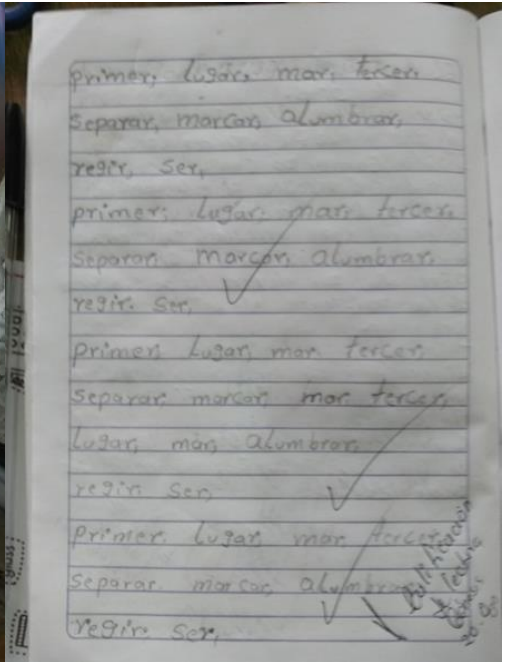 primer, lugar, mar, tercer,
separar, marcar, alumbrar,
regir, ser,
primer, lugar, mar, tercer,
separar, marcar, alumbrar,
regir. ser,
primer, lugar, mar, tercer,
separar, marcar, mar, tercer,
lugar, mar, alumbrar,
regir, ser,
primer, lugar, mar, tercer,
separar. marcar, alumbrar
regir. ser,
Calificación